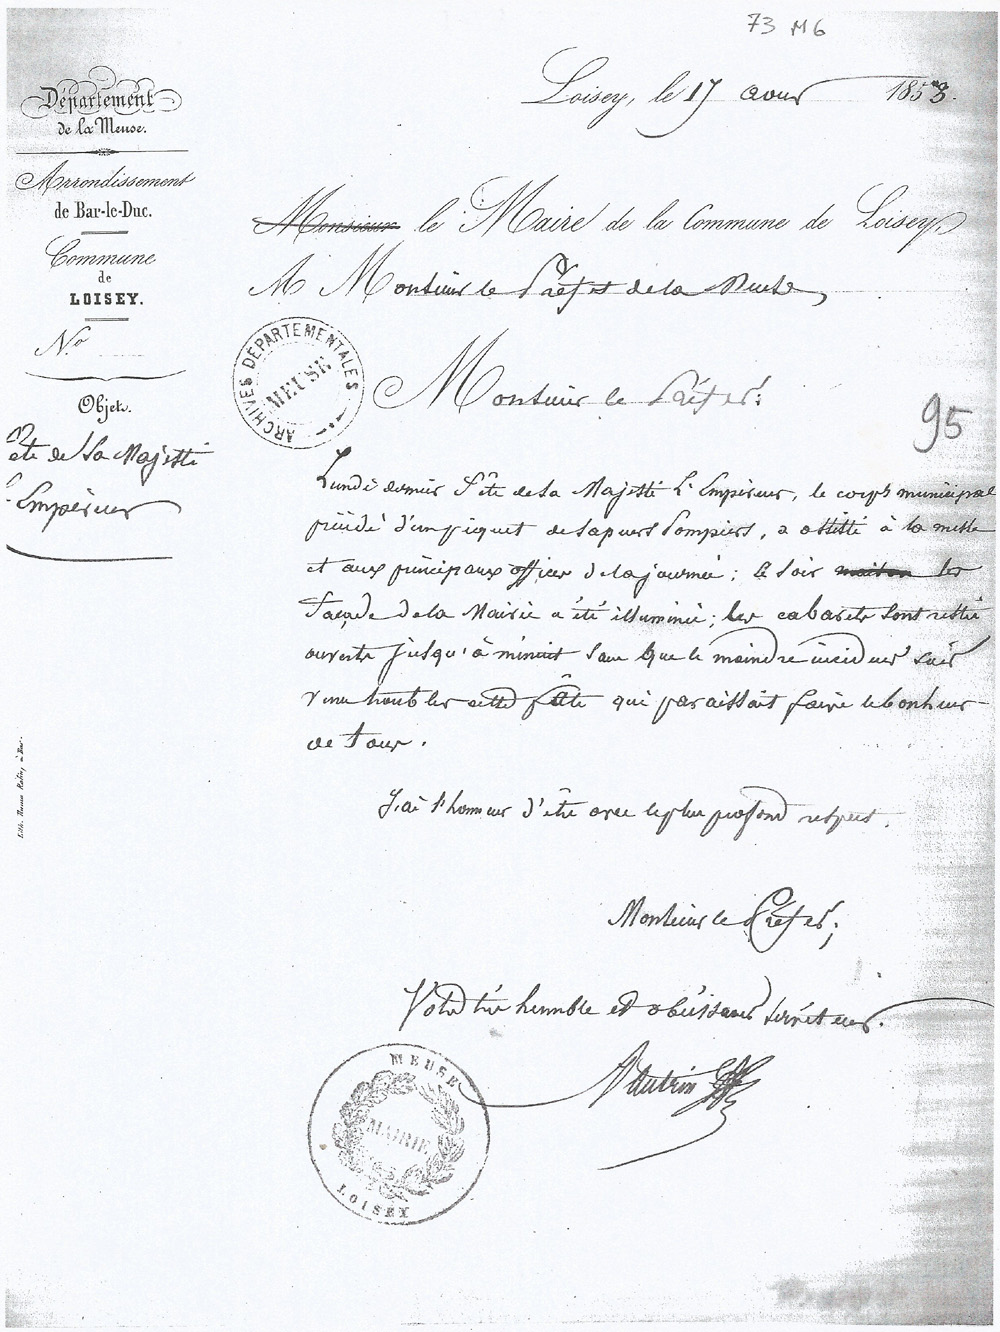 73 M 6
Loisey, le 17 aout 1853.
Département
de la Meuse.
Arrondissement
de Bar-le-Duc.
Commune
de
LOISEY.
N.o
Objet.
fête de Sa Majesté
l'Empereur
Monsieur le Maire de la Commune de Loisey,
A Monsieur le Préfet de la Meuse,
ARCHIVES DÉPARTEMENTALES
MEUSE
Monsieur le Préfet;
95
Lundi dernier fête de Sa Majesté L'Empereur, le corps municipal
précédé d'un piquet de sapeurs Pompiers, a assisté à la messe
et aux principaux offices de la journée; le soir maison la
façade de la Mairie a été illuminée; les cabarets sont resté
ouverts jusqu'à minuit sans que le moindre incident soit
venu troubler cette fête qui paraissait faire le bonheur
de tous.
J'ai l'honneur d'être avec le plus profond respect.
Monsieur le Préfet;
Votre très humble et obéissant serviteur.
Vautrin
MEUSE
MAIRIE
LOISEY